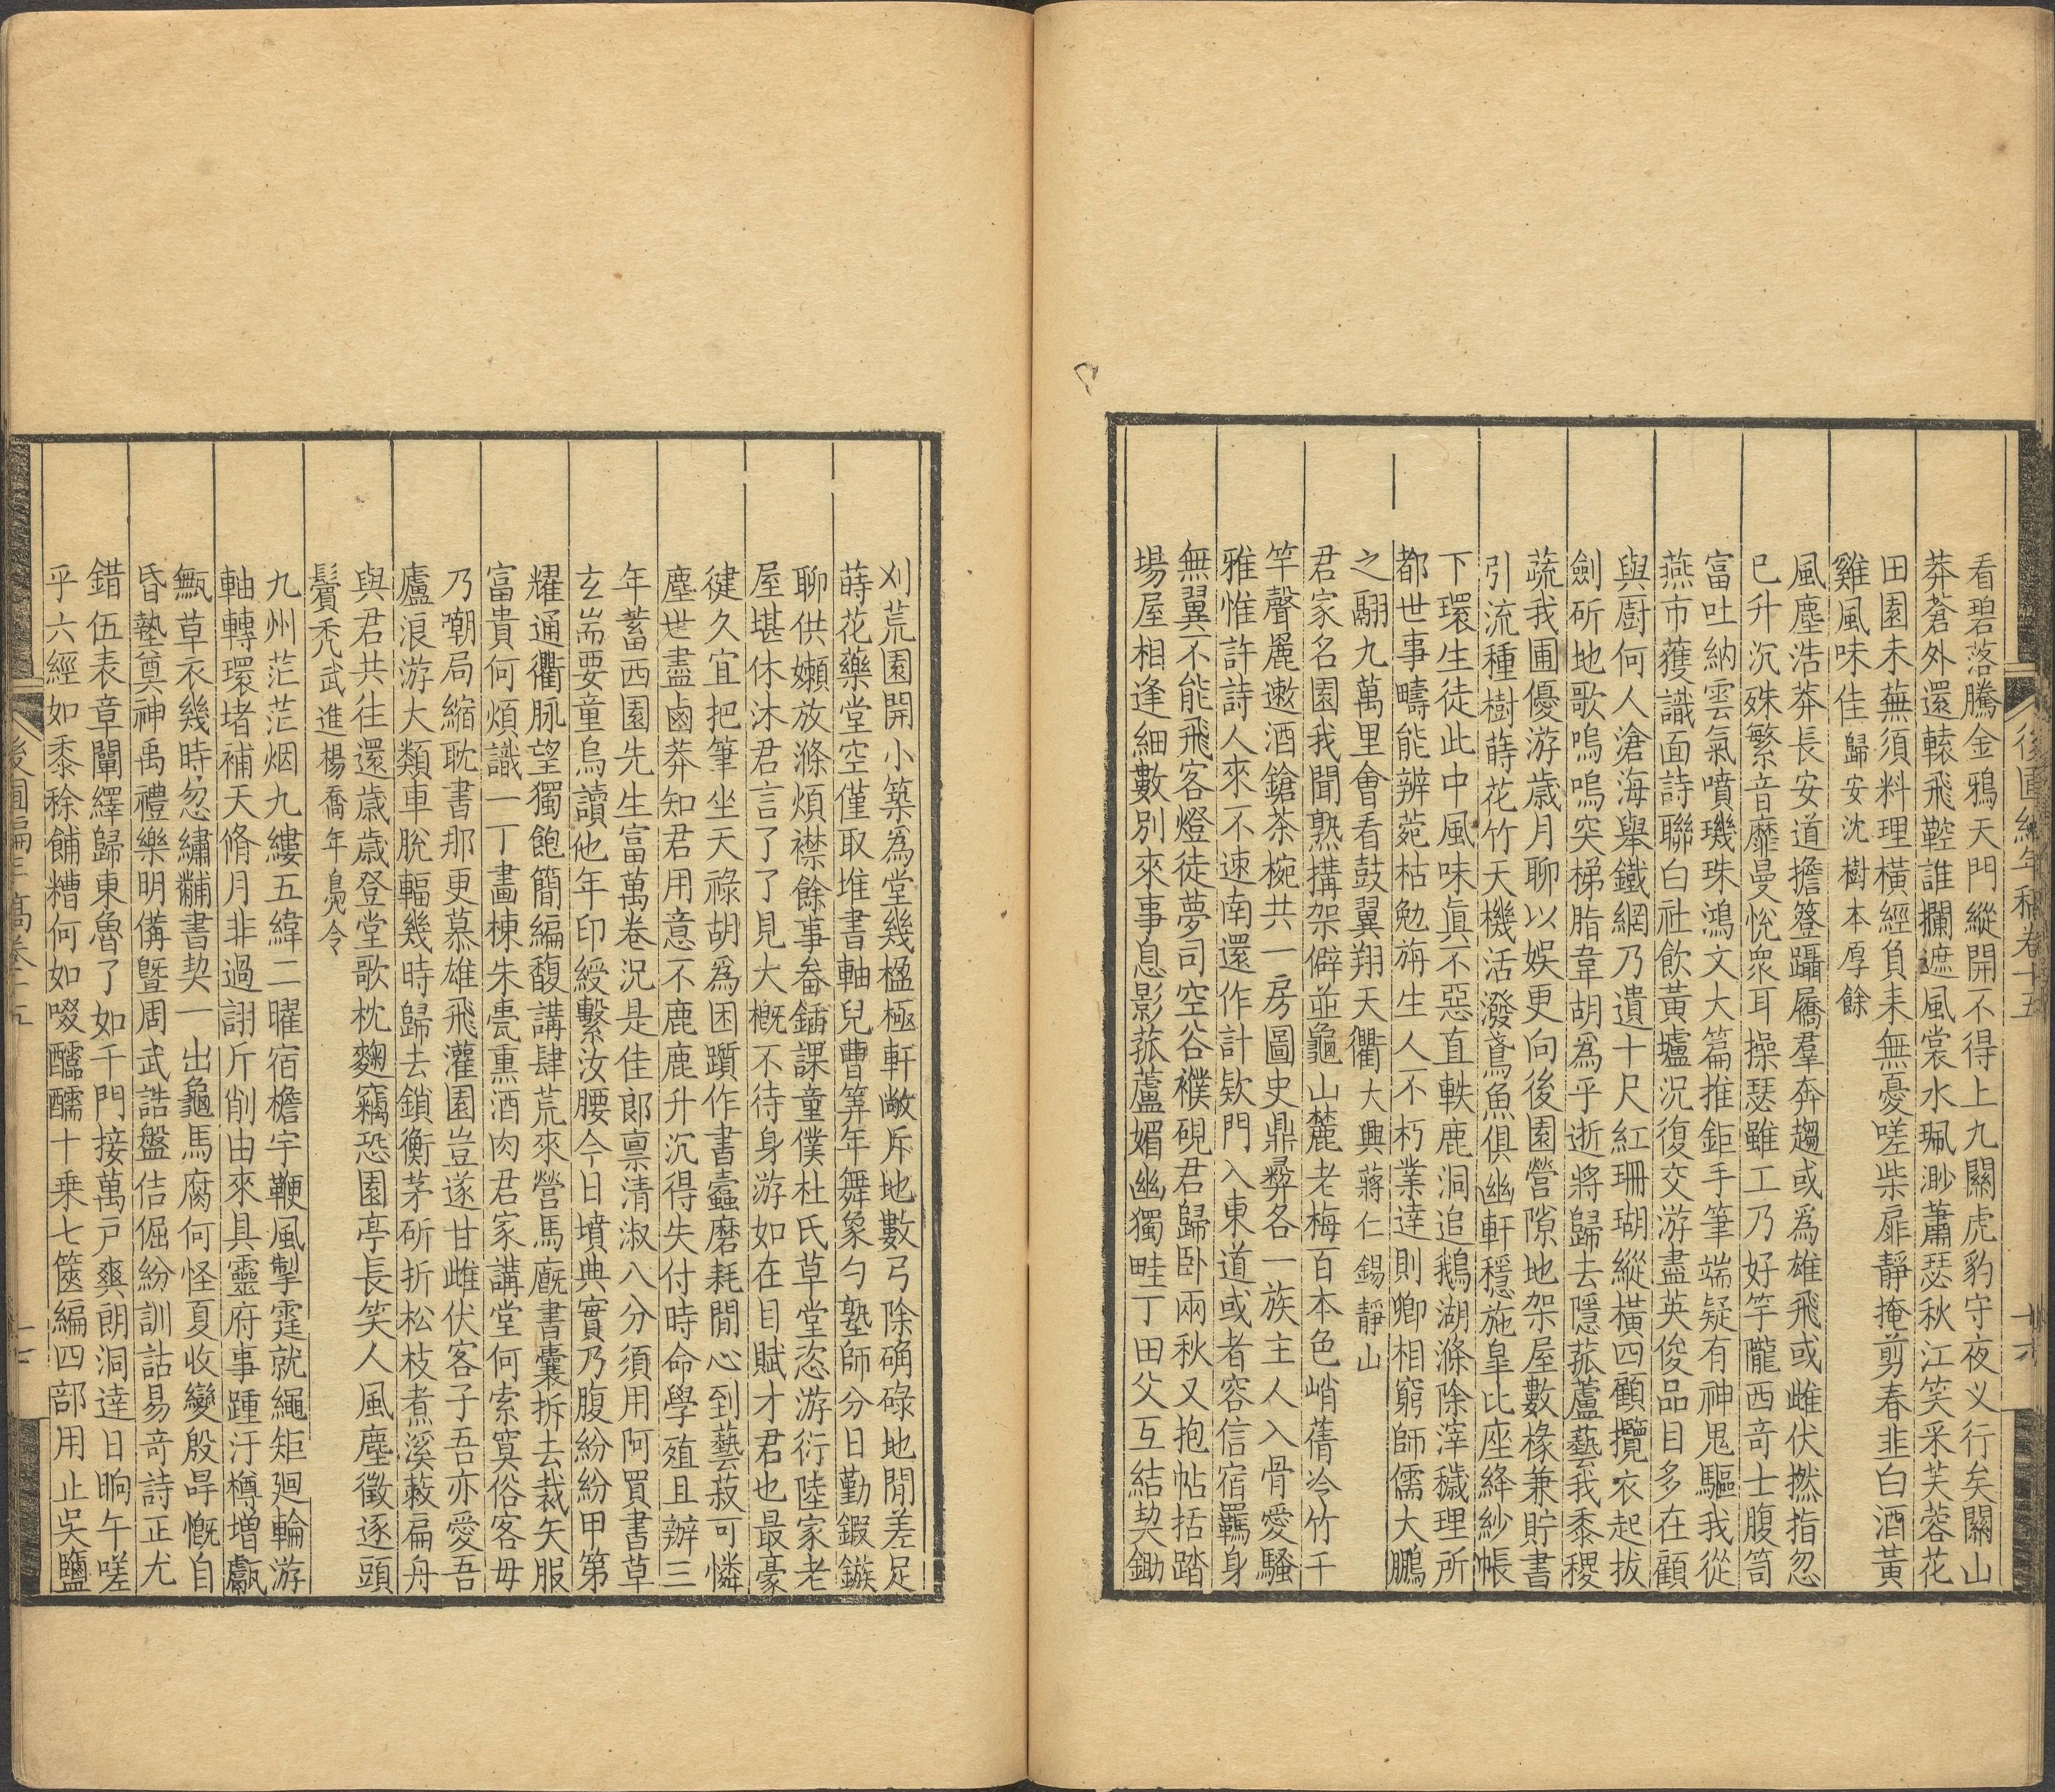 後圃編年稿卷十五
十六
看碧落騰金鴉天門縱開不得上九關虎豹守夜义行矣關山
莽蒼外還轅飛鞚誰攔遮風裳水珮渺蕭瑟秋江笑采芙蓉花
田園未蕪須料理橫經負耒無憂嗟柴扉靜掩剪春韭白酒黃
雞風味佳歸安沈樹本厚餘
風塵浩莽長安道擔簦躡屩羣奔趨或爲雄飛或雌伏撚指忽
已升沉殊繁音靡曼悅衆耳操瑟雖工乃好竽隴西奇士腹笥
富吐納雲氣噴璣珠鴻文大篇推鉅手筆端疑有神鬼驅我從
燕市蒦識面詩聯白社飲黃壚況復交游盡英俊品目多在顧
與厨何人滄海舉鐵網乃遺十尺紅珊瑚縱橫四顧攬衣起拔
劍斫地歌嗚嗚突梯脂韋胡爲乎逝將歸去隱菰蘆藝我黍稷
蔬我圃優游歲月聊以娛更向後園營隙地架屋數椽兼貯書
引流種樹蒔花竹天機活潑鳶魚俱幽軒穩施皐比座絳紗帳
下環生徒此中風味眞不惡直軼鹿洞追鵝湖滌除滓穢理所
都世事疇能辨菀枯勉旃生人不朽業達則卿相窮師儒大鵬
之翮九萬里會看鼓翼翔天衢大興蔣仁錫靜山
君家名園我聞熟搆架僻並龜山麓老梅百本色峭蒨冷竹千
竿聲麗遬酒鎗茶椀共一房圖史鼎彝各一族主人入骨愛騷
雅惟許詩人來不速南還作計欵門入東道或者容信宿羈身
無翼不能飛客燈徒夢司空谷襆硯君歸卧兩秋又抱帖括踏
場屋相逢細數別來事息影菰蘆媚幽獨畦丁田父互結契鋤
刈荒園開小築爲堂幾楹極軒敞斥地數弓除确碌地閒差足
蒔花藥堂空僅取堆書軸兒曹筭年舞象勺塾師分日勤鍜鏃
聊供嬾放滌煩襟餘事畚鍤課童僕杜氏草堂恣游衍陸家老
屋堪休沐君言了了見大槪不待身游如在目賦才君也最豪
徤久宜把筆坐天祿胡爲困躓作書蠹磨耗閒心到藝菽可憐
塵世盡鹵莽知君用意不鹿鹿升沉得失付時命學殖且辦三
年蓄西園先生富萬卷況是佳郎禀清淑八分須用阿買書草
玄耑要童烏讀他年印綬繫汝腰今日墳典實乃腹紛紛甲第
耀通衢脉望獨飽簡編馥講肆荒來營馬廐書囊拆去裁矢服
富貴何煩識一丁畵棟朱甍熏酒肉君家講堂何索寞俗客毋
乃嘲局縮耽書那更慕雄飛灌園豈遂甘雌伏客子吾亦愛吾
廬浪游大類車脫輻幾時歸去鎖衡茅斫折松枝煮溪蔌扁舟
與君共往還歲歲登堂歌枕麴竊恐園亭長笑人風塵徵逐頭
鬢禿武進楊喬年鳧令
九州茫茫烟九縷五緯二曜宿檐宇鞭風掣霆就繩矩廻輪游
軸轉環堵補天脩月非過詡斤削由來具靈府事踵汙樽增甗
甒草衣幾時忽繡黼書契一出龜馬腐何怪夏收變殷冔慨自
昏墊奠神禹禮樂明備曁周武誥盤佶倔紛訓詁易奇詩正尤
錯伍表章闡繹歸東魯了如千門接萬戸爽朗洞達日晌午嗟
乎六經如黍稌餔糟何如啜醹醹十乗七篋編四部用止吳鹽
後圃編年稿卷十五